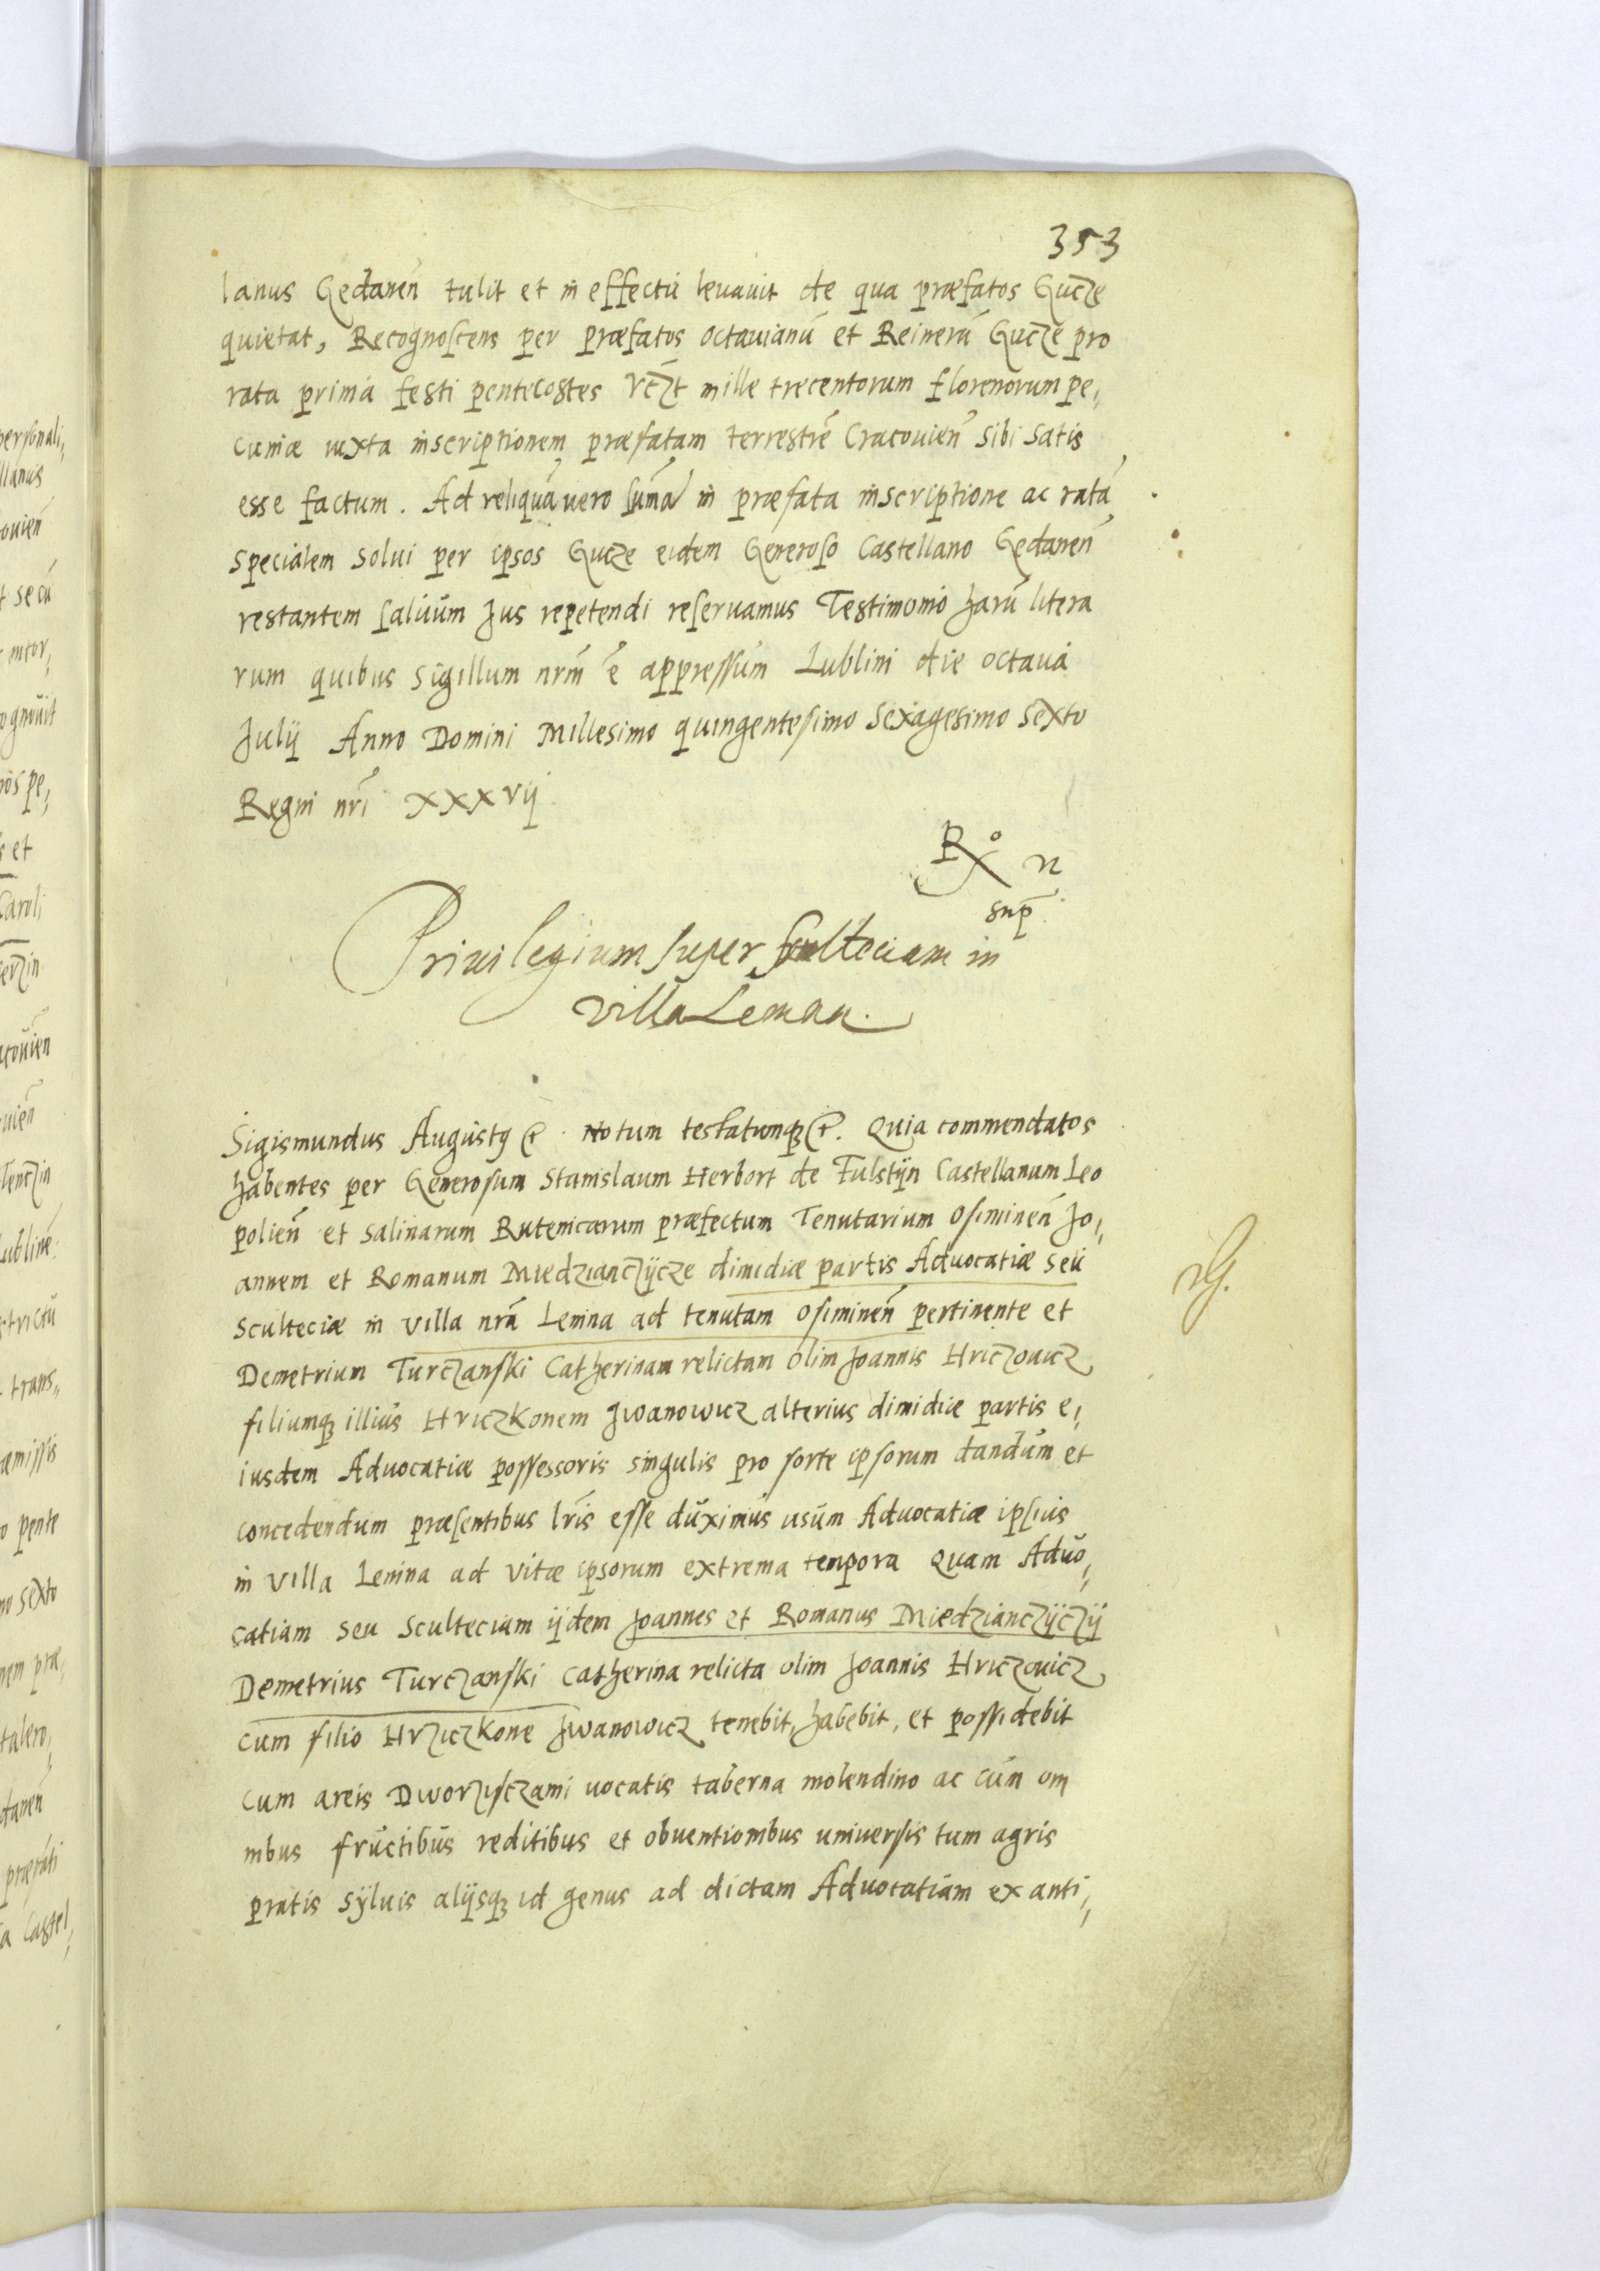 353
lanus Gedanen̄ tulit et in effectu levavit de qua præfatos Gucze
quietat, Recognoscens per præfatos Octavianū et Reinerū Gucze pro
rata prima festi pentecostes vczt mille trecentorum florenorum pe,
cuniæ iuxta inscriptionem præfatam terrestrē Cracovien̄ sibi satis
esse factum. Ad reliquā vero sum̄ā in præfata inscriptione ac ratā
specialem solvi per ipsos Gucze eidem Generoso Castellano Gedanen̄
restantem salvum Jus repetendi reservamus Testimonio harū litera
rum quibus sigillum nr̄m ē appressum Lublini die octava
Julij Anno Domini Millesimo quingentesimo sexagesimo sexto
Regni nr̄i xxxvij
Rº n
sup̄
Privilegium super sculteciam in
villa Leman.
Sigismundus Augustꝰ &. Notum testatumqꝫ &. Quia commendatos
habentes per Generosum Stanislaum Herbort de Fulstijn Castellanum Leo
polien̄ et Salinarum Rutenicarum præfectum Tenutarium Osiminen̄ Jo,
annem et Romanum Miedzianczijcze dimidiæ partis Advocatiæ seu
Sculteciæ in villa nr̄a Lenina ad tenutam Osiminen̄ pertinente et
Demetrium Turczanski Catherinam relictam olim Joannis Hriczovicz
filiumqꝫ illius Hriczkonem Jwanowicz alterius dimidiæ partis e,
iusdem Advocatiæ possessoris singulis pro sorte ipsorum dandum et
concedendum præsentibus lr̄is esse duximus usum Advocatiæ ipsius
in villa Lenina ad vitæ ipsorum extrema tempora Quam Advo,
catiam seu Sculteciam ijdem Joannes et Romanus Miedzianczijczij
Demetrius Turczanski Catherina relicta olim Joannis Hriczovicz
cum filio Hrziczkone Jwanowicz tenebit, habebit, et possidebit
cum areis Dworzisczami vocatis taberna molendino ac cum om
nibus fructibus reditibus et obventionibus universis tum agris
pratis sylvis alijsqꝫ id genus ad dictam Advocatiam ex anti,